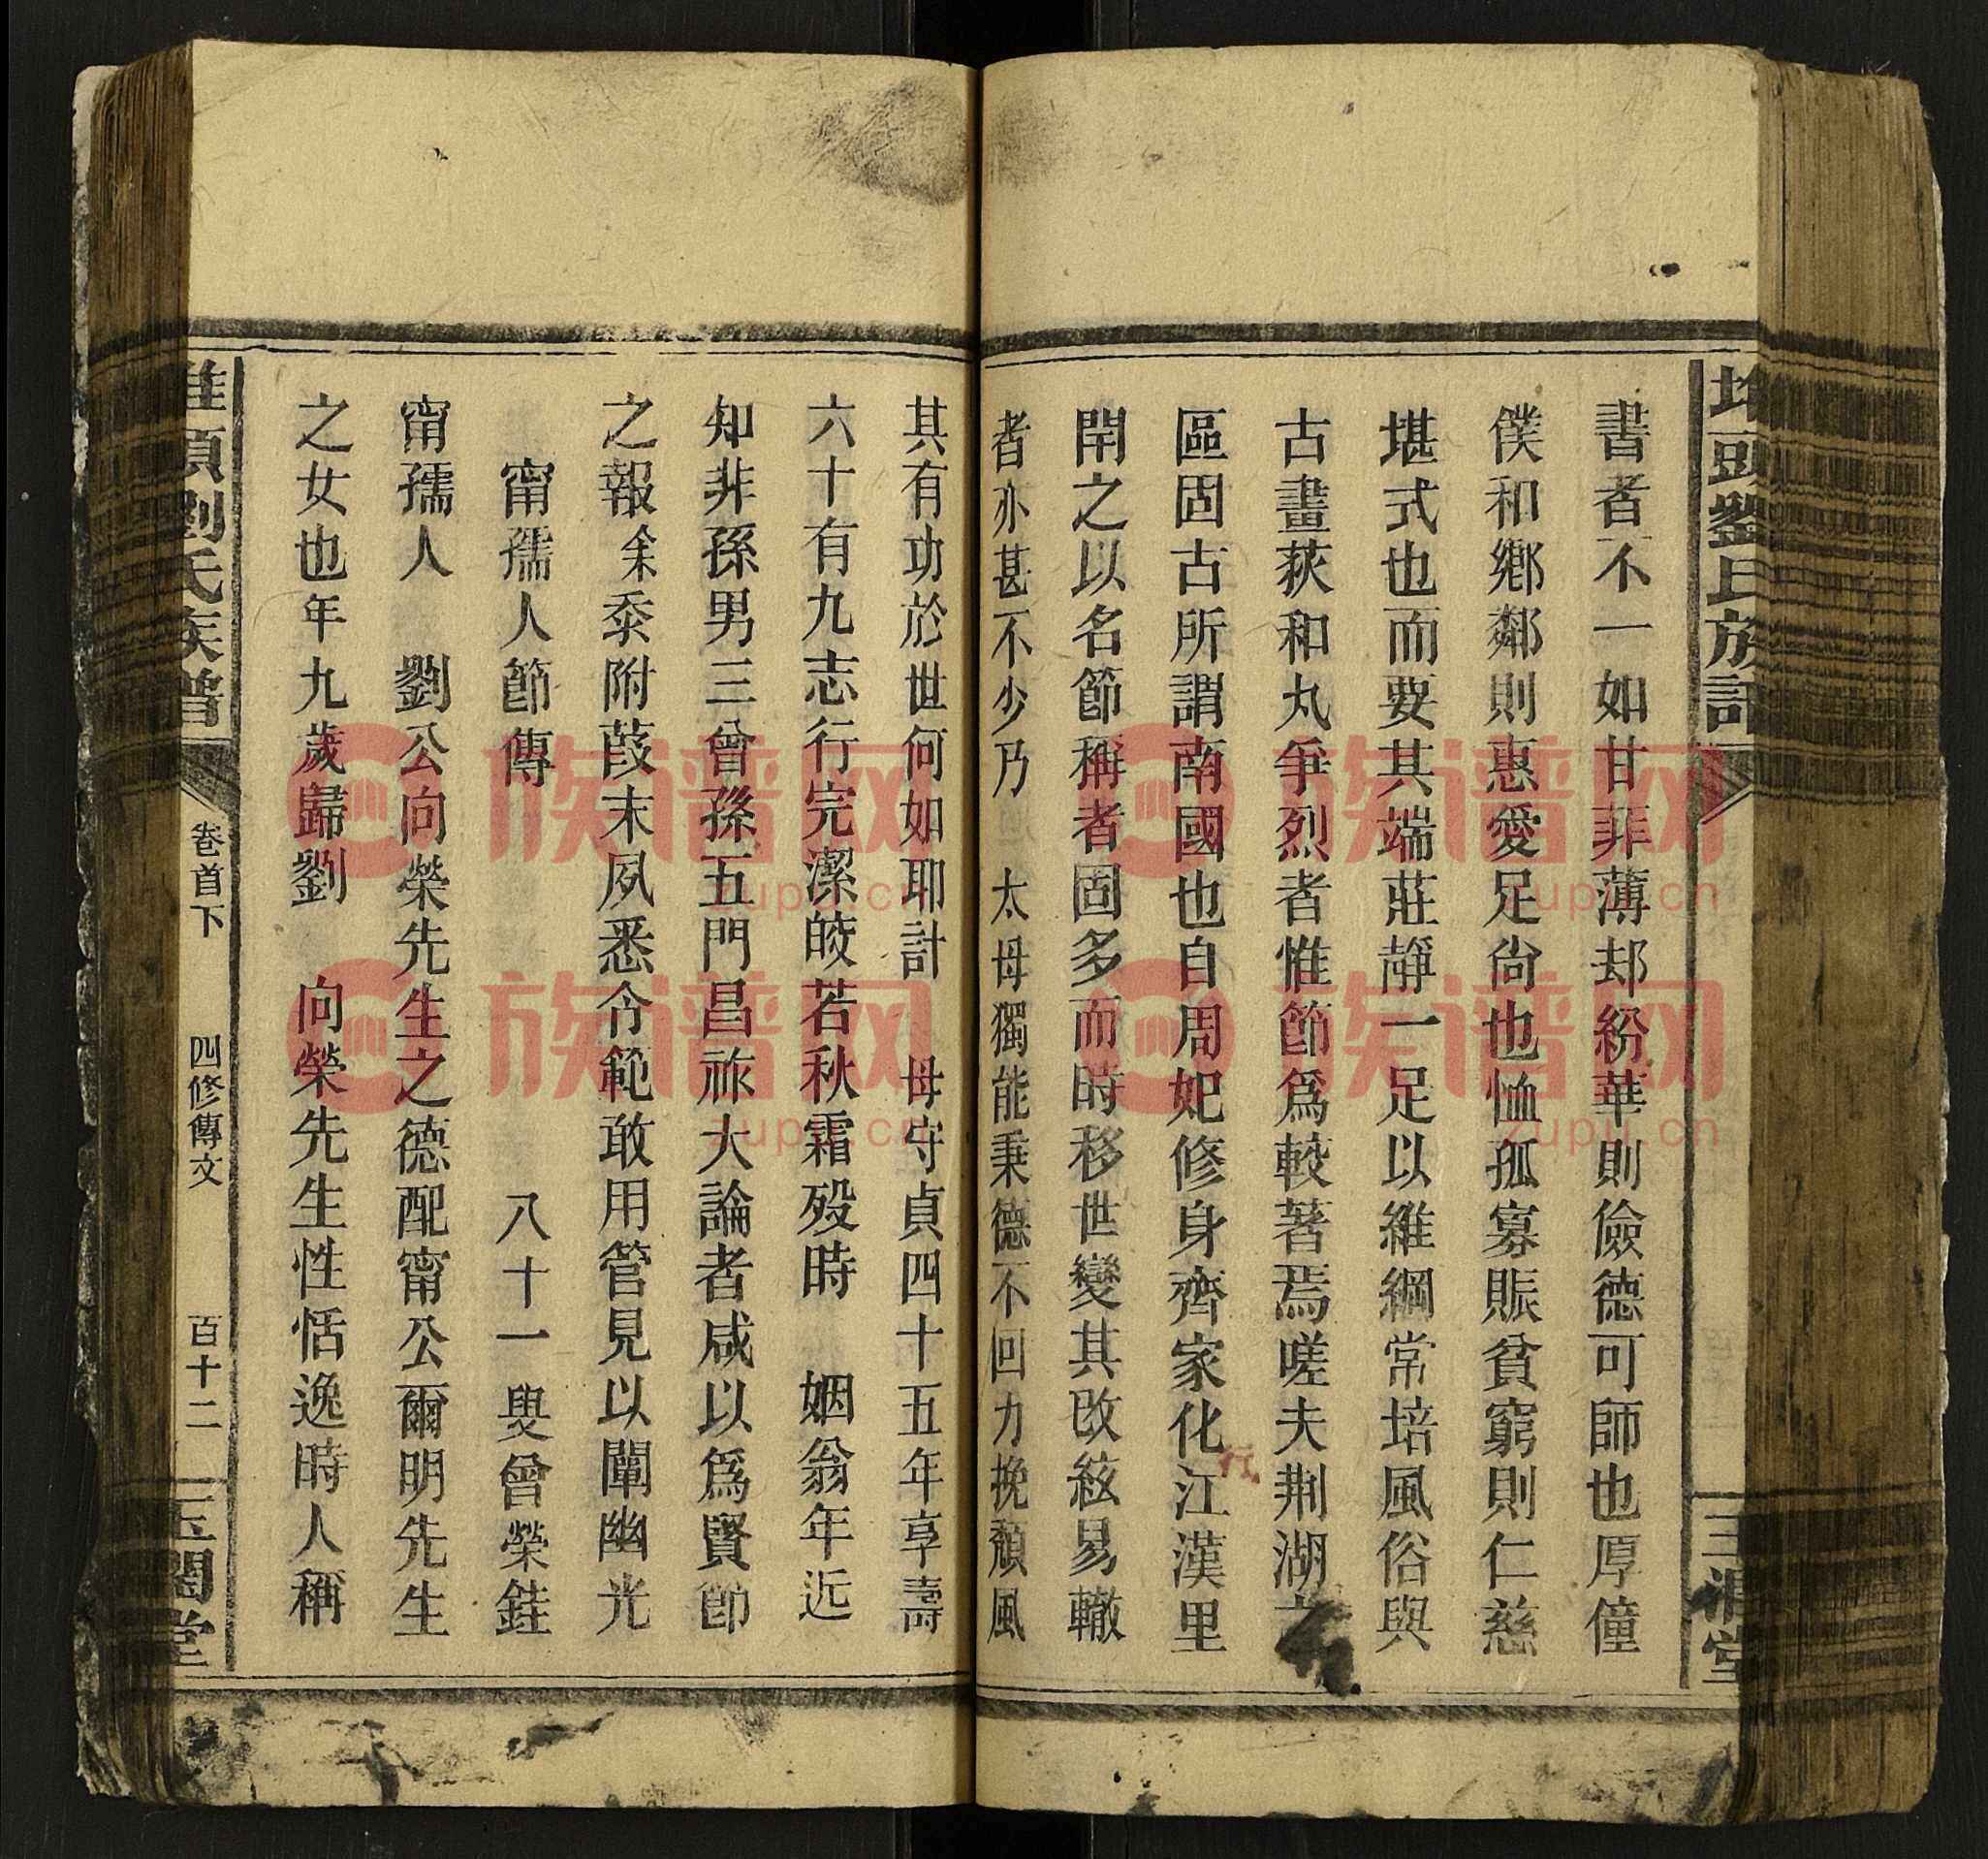 書者不一如甘菲薄却紛華則儉德可師也厚僮
僕和鄉鄰則惠愛足尙也恤孤寡賑貧窮則仁慈
堪式也而要其端莊靜一足以維綱常培風俗與
古畫荻和丸爭烈者惟節爲較著焉嗟夫荆湖
區固古所謂南國也自周妃修身齊家化行江漢里
閈之以名節稱者固多而時移世變其改絃易轍
者亦甚不少乃　太母獨能秉德不回力挽頹風
其有功於世何如耶計　母守貞四十五年享壽
六十有九志行完潔皎若秋霜歿時　姻翁年近
知非孫男三曾孫五門昌祚大論者咸以爲賢節
之報余忝附葭末夙悉令範敢用管見以闡幽光
八十一叟曾榮銈
甯孺人節傳
甯孺人　劉公向榮先生之德配甯公爾明先生
之女也年九歲歸劉　向榮先生性恬逸時人稱
頭劉氏族譜
卷首下
四修傳文
百十二
閣堂
族谱网
zupu.cn
族谱网
zupu.cn
族谱网
zupu.cn
族谱网
zupu.cn